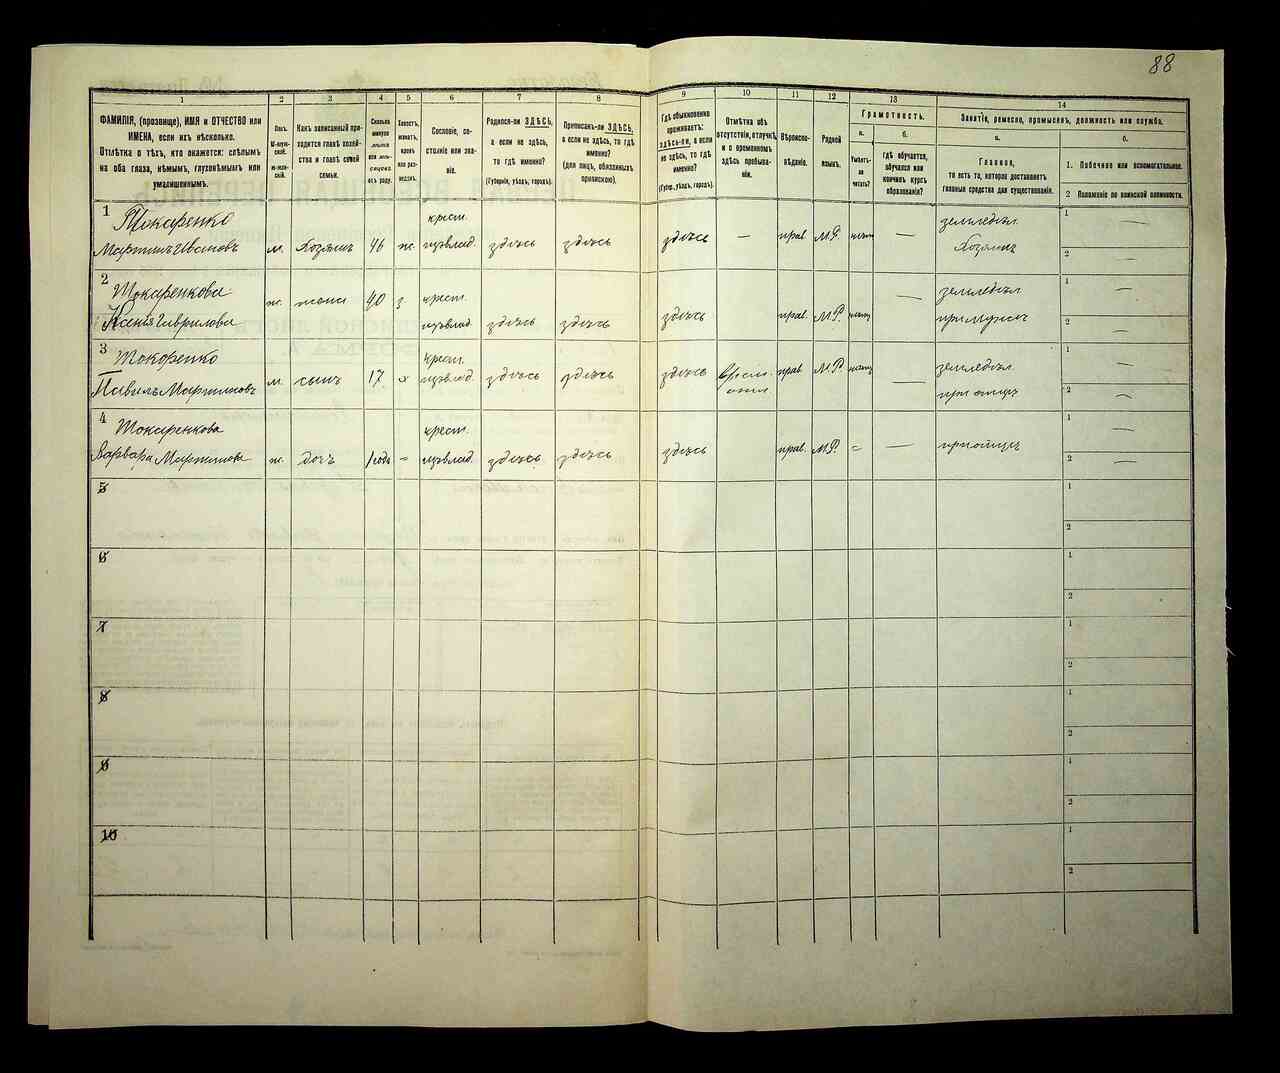 88
1 2 3 4 5 6 7 8 9 10 11 12 13 14
ФАМИЛІЯ, (прозвище), ИМЯ и ОТЧЕСТВО или
ИМЕНА, если ихъ нѣсколько.
Отмѣтка о тѣхъ, кто окажется: слѣпымъ
на оба глаза, нѣмымъ, глухонѣмымъ или
умалишеннымъ.
Полъ.
М-муж-
ской.
Ж-жен-
скій.
Какъ записанный при-
ходится главѣ хозяй-
ства и главѣ своей
семьи.
Сколько
минуло
лѣтъ
или мѣ-
сяцевъ
отъ роду.
Холостъ,
женатъ,
вдовъ
или раз-
веденъ.
Сословіе, со-
стояніе или зва-
ніе.
Родился-ли ЗДѢСЬ,
а если не здѣсь,
то гдѣ именно?
(Губернія, уѣздъ, городъ).
Приписанъ-ли ЗДѢСЬ,
а если не здѣсь, то гдѣ
именно?
(для лицъ, обязанныхъ
припискою).
Гдѣ обыкновенно
проживаетъ:
здѣсь-ли, а если
не здѣсь, то гдѣ
именно?
(Губерн., уѣздъ, городъ).
Отмѣтка объ
отсутствіи, отлучкѣ
и о временномъ
здѣсь пребыва-
ніи.
Вѣроиспо-
вѣданіе.
Родной
языкъ.
Грамотность.
а. б.
Умѣетъ-
ли
читать?
гдѣ обучается,
обучался или
кончилъ курсъ
образованія?
Занятіе, ремесло, промыселъ, должность или служба.
а. б.
Главное,
то есть то, которое доставляетъ
главныя средства для существованія.
1. Побочное или вспомогательное.
2 Положеніе по воинской повинности.
1 Токаренко крест. земледѣл. 1 —
Мартинъ Ивановъ м. Хозяинъ 46 ж. здѣсь здѣсь здѣсь — прав. М.Р. — Хозяинъ 2 —
2 Токаренкова земледѣл 1 —
Гаврилова ж. жена 40 з. крест. здѣсь здѣсь здѣсь прав. М.Р. — при мужѣ 2 —
3 Токоренко крест. земледѣл 1 —
Мартиновъ м. сынъ 17 х здѣсь здѣсь здѣсь прав. М.Р. — при отцѣ 2 —
4 Токаренкова крест. 1 —
Варвара Мартинова ж. дочь 1 годъ - здѣсь здѣсь здѣсь прав. М.Р. - — при отцѣ 2 —
5 1
2
6 1
2
7 1
2
8 1
2
9 1
2
10 1
2